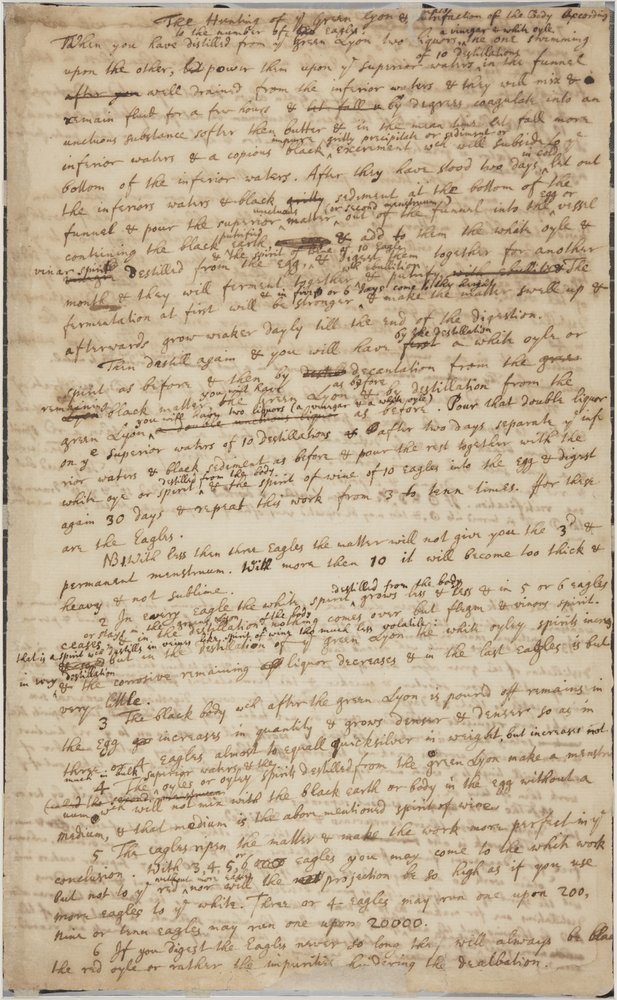 The Hunting of yᵉ Green Lyon & putrefaction of the Body According
to the number of eagles.
When you have distilled from yᵉ Green Lyon two liquors, a vinegar & white oyle the one swimming
upon the other, power them upon yᵉ superior waters of 10 destillations in the funnel
after you well drained from the inferior waters & they will mix &
remain fluid for a few hours & let fall & by degrees coagulate into an
unctuous substance softer then butter & in the mean time let fall more
inferior waters & a copious black impure gritty precipitate or sediment or excrement wch will subside to yᵉ
bottom of the inferior waters. After they have stood two days in cold let out
the inferiors waters & black gritty sediment at the bottom of the
funnel & pour the superior unctuous matter (or second menstruum) out of the funnel into the egg or vessel
conteining the black earth putrefied & add to them the white oyle &
vinar spirit destilled from the Egg, & the spirit of wine of 10 Eagles & digest them together for another
month & they will ferment together wth ebullition & putrefy, The
fermentation at first will be stronger & in five or 6 days come to they height & make the matter swell up &
afterwards grow weaker dayly till the end of the digestion.
Then distill again & you will have first by the destillation a white oyle or
spirit as before & then by decantation from the
remaining black matter you will have the Green Lyon as before & by destillation from the
green Lyon you will have two liquors (a vinegar & white oyle) as before. Pour that double liquor
on yᵉ superior waters of 10 destillations & after two days separate yᵉ infe
rior waters & black sediment as before & pour the rest together with the
white oye or spirit destilled from the body & the spirit of wine of 10 eagles into the egg & digest
again 30 days & repeat this work from 3 to tenn times. ffor these
are the Eagles.
NB 1 With less then three Eagles the matter will not give you the 3ᵈ &
permanant menstruum. With more then 10 it will become too thick &
heavy & not sublime.
2 In every Eagle the white spirit destilled from the body grows less & less & in 5 or 6 eagles
ceases or stays in the green Lyon & in the destillation of the body nothing comes over but flegm & vinous spirit.
that is a spirit wch destills in veines like spirit of wine tho much less volatile:
& But in the destillation of yᵉ green Lyon the white oyley spirits increas
in every destillation & the corrosive remaining liquor decreases & in the last Eagles is but
very little.
3 The black body wch after the green Lyon is poured off remains in
the Egg increases in quantity & grows denser & denser so as in
three or 4 Eagles almost to equall quicksilver in weight, but increases not
much in bulk
4 The superior waters, & the oyles or oyley spirits destilled from the green Lyon make a menstru
um wch will not mix with the black earth or body in the egg without a
medium, & that medium is the above mentioned spirit of wine
5 The eagles ripen the matter & make the work more perfect in yᵉ
conclusion. With 3, 4, 5, 6 eagles you may come to the white work
but not to yᵉ red without more eagles nor will the projection be so high as if you use
more eagles to yᵉ white. Three or 4 eagles may run one upon 200,
nine or tenn eagles may run one upon 20000.
6 If you digest the Eagles never so long they will always be blac
the red oyle or rather the impurities hindering the dealbation.